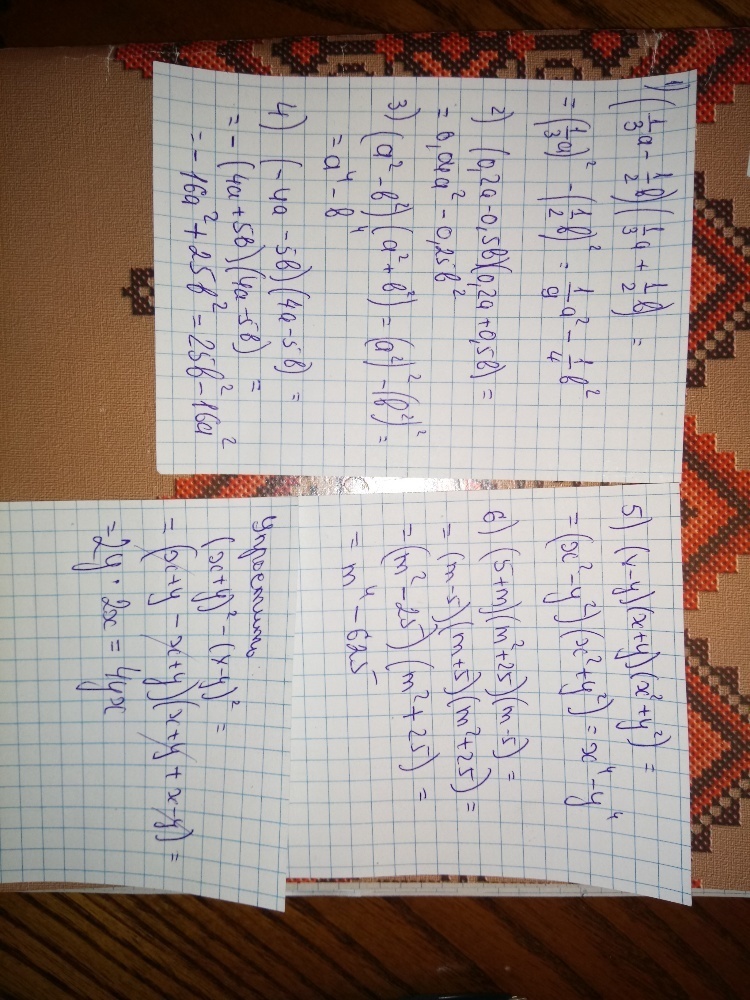 1) (1/3 a - 1/2 b)(1/3 a + 1/2 b) =
= (1/3 a)² - (1/2 b)² = 1/9 a² - 1/4 b²
2) (0,2a-0,5b)(0,2a+0,5b) =
= 0,04a² - 0,25b²
3) (a² - b²)(a² + b²) = (a²)² - (b²)² =
= a⁴ - b⁴
4) (-4a - 5b)(4a - 5b) =
= - (4a + 5b)(4a - 5b) =
= - 16a² + 25b² = 25b² - 16a²
5) (x-y)(x+y)(x²+y²) =
= (x² - y²)(x² + y²) = x⁴ - y⁴
6) (5+m)(m²+25)(m-5) =
= (m-5)(m+5)(m²+25) =
= (m² - 25)(m² + 25) =
= m⁴ - 625
Упростить
(x+y)² - (x-y)² =
= (x+y - x+y)(x+y + x-y) =
= 2y · 2x = 4yx